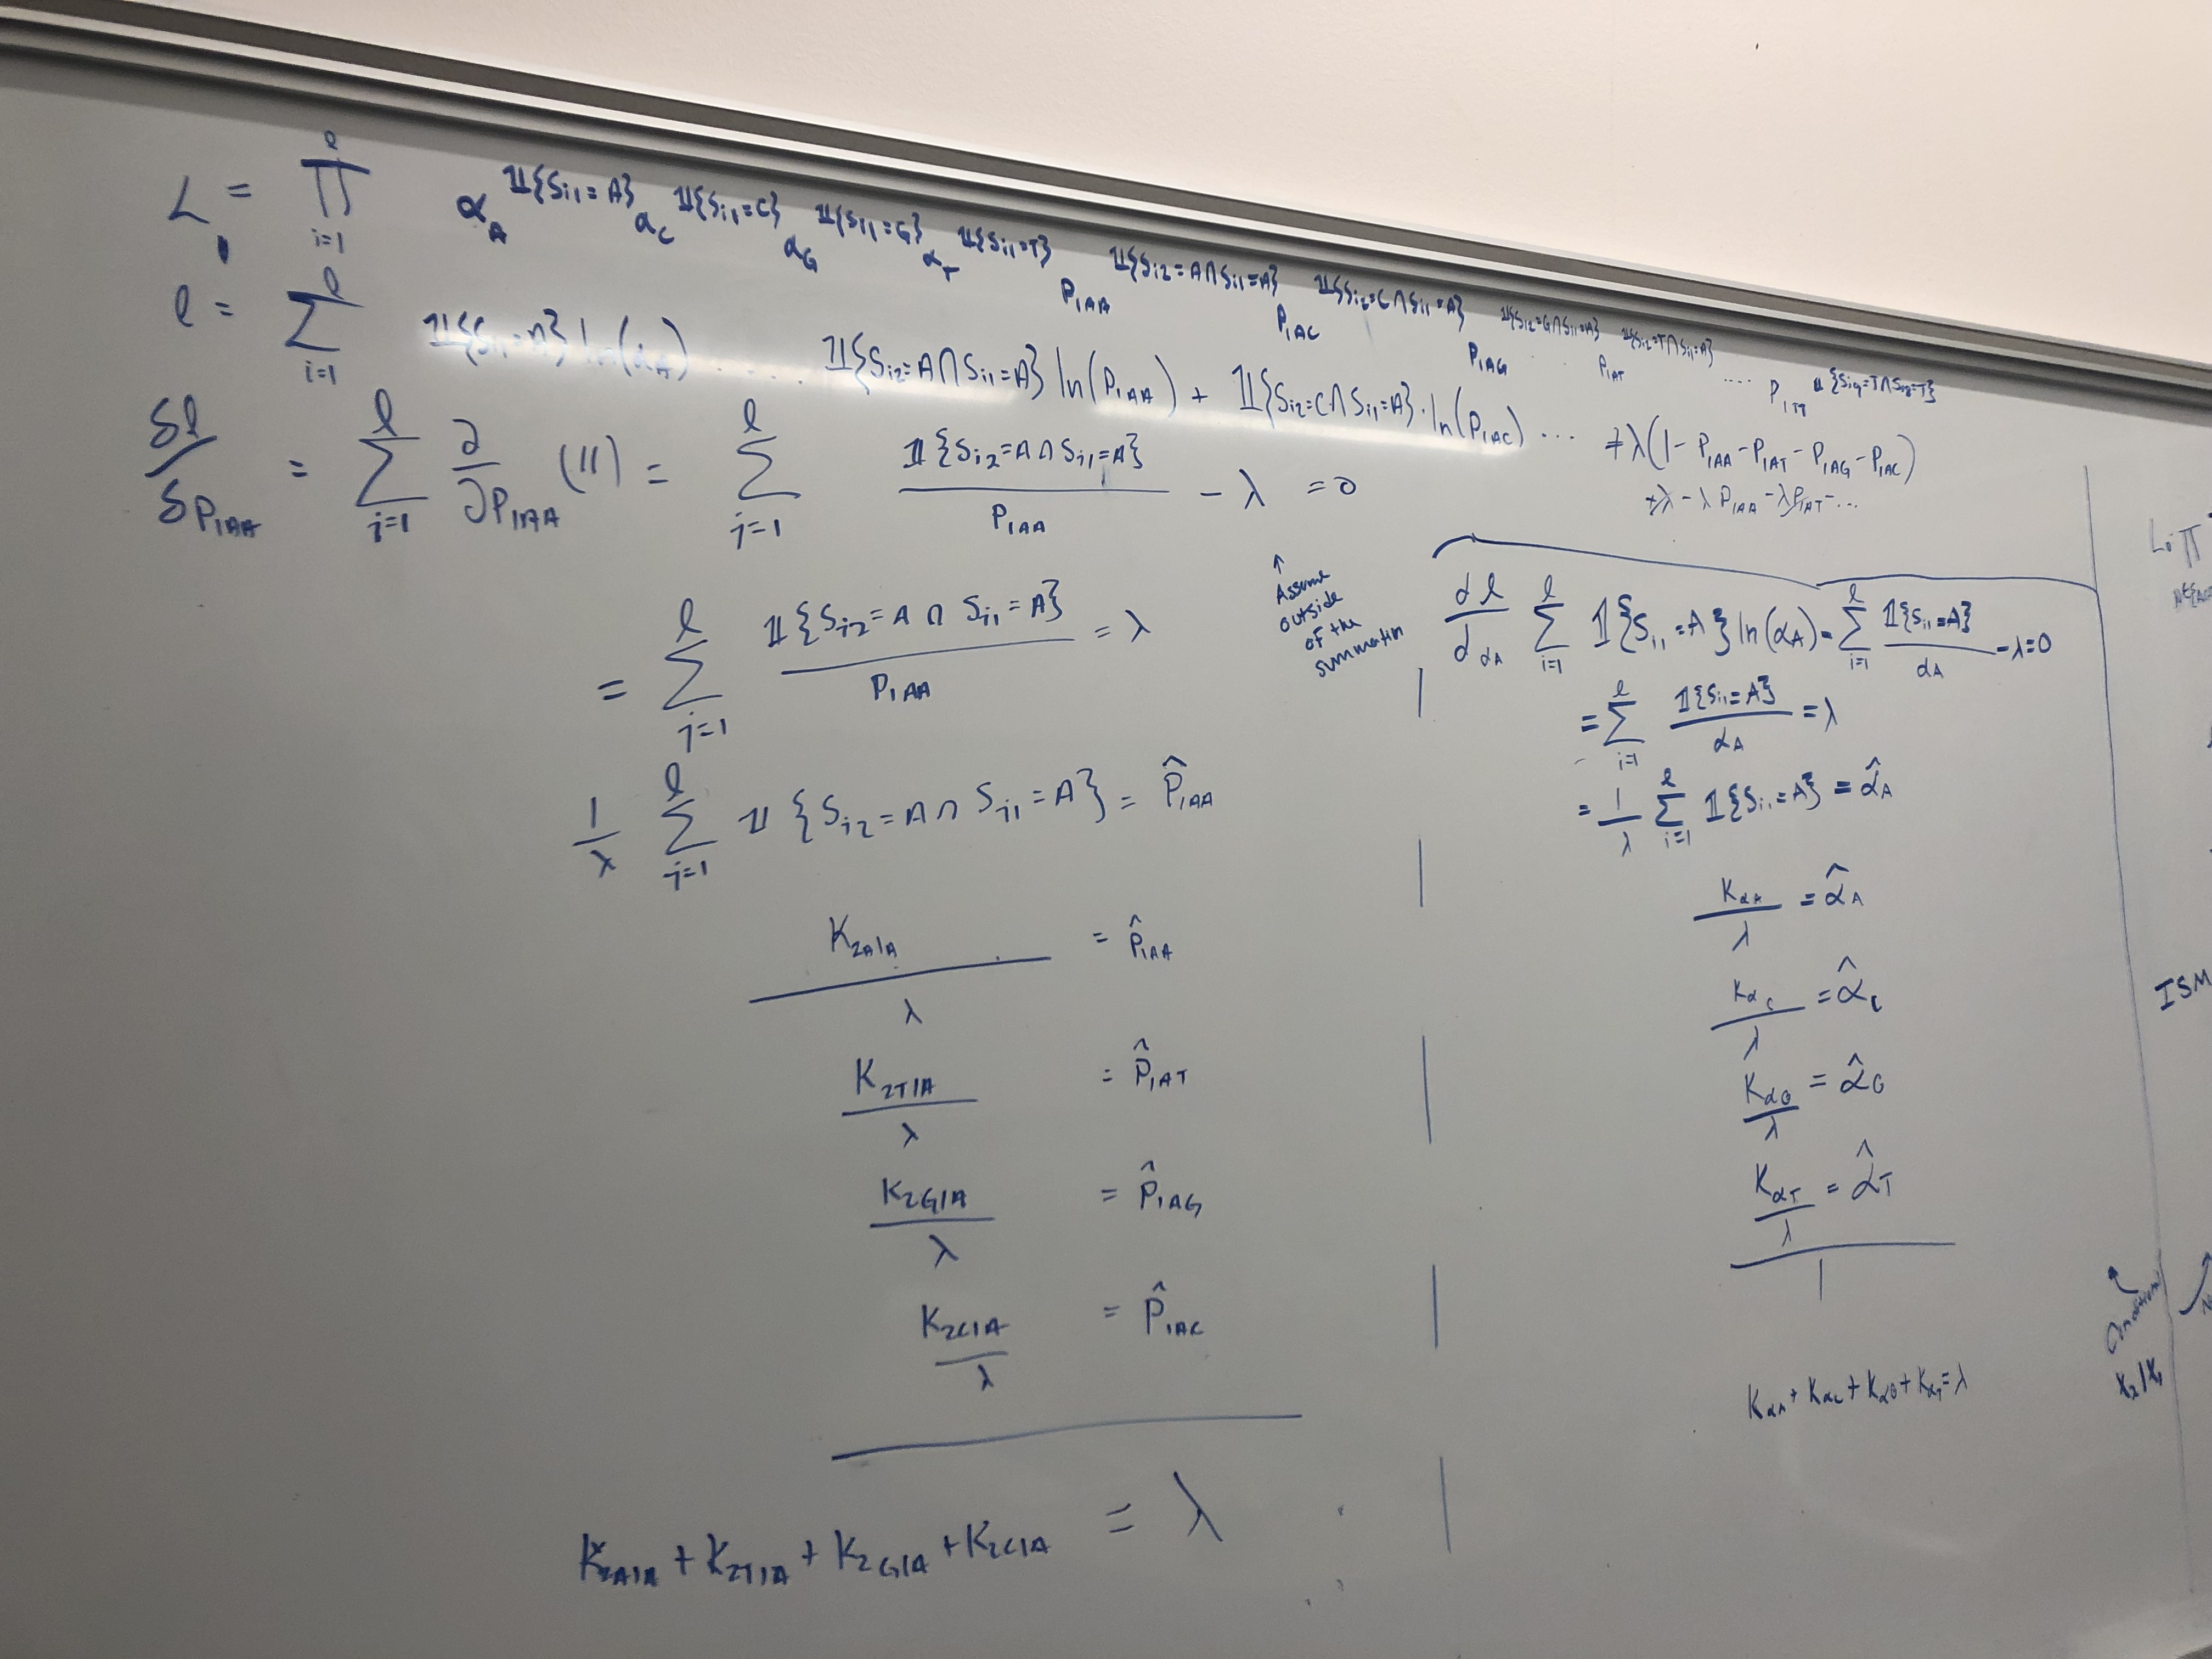 L = ∏_{i=1}^{ℓ} α_A^{𝟙{S_{i1}=A}} α_C^{𝟙{S_{i1}=C}} α_G^{𝟙{S_{i1}=G}} α_T^{𝟙{S_{i1}=T}} P_{1AA}^{𝟙{S_{i2}=A∩S_{i1}=A}} P_{1AC}^{𝟙{S_{i2}=C∩S_{i1}=A}} P_{1AG}^{𝟙{S_{i2}=G∩S_{i1}=A}} P_{1AT}^{𝟙{S_{i2}=T∩S_{i1}=A}} ....
ℓ = ∑_{i=1}^{ℓ} 𝟙{S_{i1}=A} ln(α_A) ..... 𝟙{S_{i2}=A∩S_{i1}=A} ln(P_{1AA}) + 𝟙{S_{i2}=C∩S_{i1}=A}·ln(P_{1AC}) ... +λ(1-P_{1AA}-P_{1AT}-P_{1AG}-P_{1AC})
+λ-λP_{1AA}-λP_{1AT}-...
δℓ/δP_{1AA} = ∑_{i=1}^{ℓ} ∂/∂P_{1AA} (11) = ∑_{i=1}^{ℓ} 𝟙{S_{i2}=A∩S_{i1}=A}/P_{1AA} - λ = 0
↑
Assume
outside
of the
summation
= ∑_{i=1}^{ℓ} 𝟙{S_{i2}=A∩S_{i1}=A}/P_{1AA} = λ
1/λ ∑_{i=1}^{ℓ} 𝟙{S_{i2}=A∩S_{i1}=A} = P̂_{1AA}
K_{2A1A}/λ = P̂_{1AA}
K_{2T1A}/λ = P̂_{1AT}
K_{2G1A}/λ = P̂_{1AG}
K_{2C1A}/λ = P̂_{1AC}
K_{2A1A} + K_{2T1A} + K_{2G1A} + K_{2C1A} = λ
dℓ/dα_A ∑_{i=1}^{ℓ} 𝟙{S_{i1}=A} ln(α_A) = ∑_{i=1}^{ℓ} 𝟙{S_{i1}=A}/α_A - λ=0
= ∑_{i=1}^{ℓ} 𝟙{S_{i1}=A}/α_A = λ
= 1/λ ∑_{i=1}^{ℓ} 𝟙{S_{i1}=A} = α̂_A
K_{αA}/λ = α̂_A
K_{αC}/λ = α̂_C
K_{αG}/λ = α̂_G
K_{αT}/λ = α̂_T
1
K_{αA} + K_{αC} + K_{αG} + K_{αT} = λ
ISM
X_2|X_1